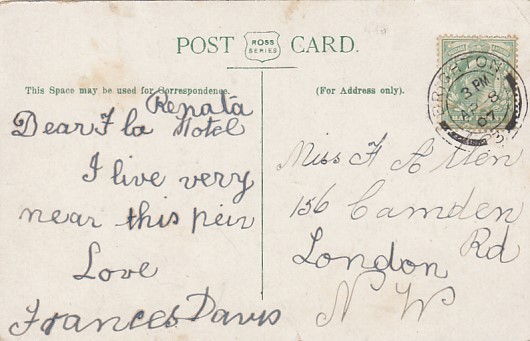 POST ROSS SERIES CARD.
This Space may be used for Correspondence.
(For Address only).
BRIGHTON
3 PM
8
07
Renata
Dear Flo Hotel
I live very
near this peir
Love
Frances Davis
Miss F Allen
156 Camden
Rd
London
N W